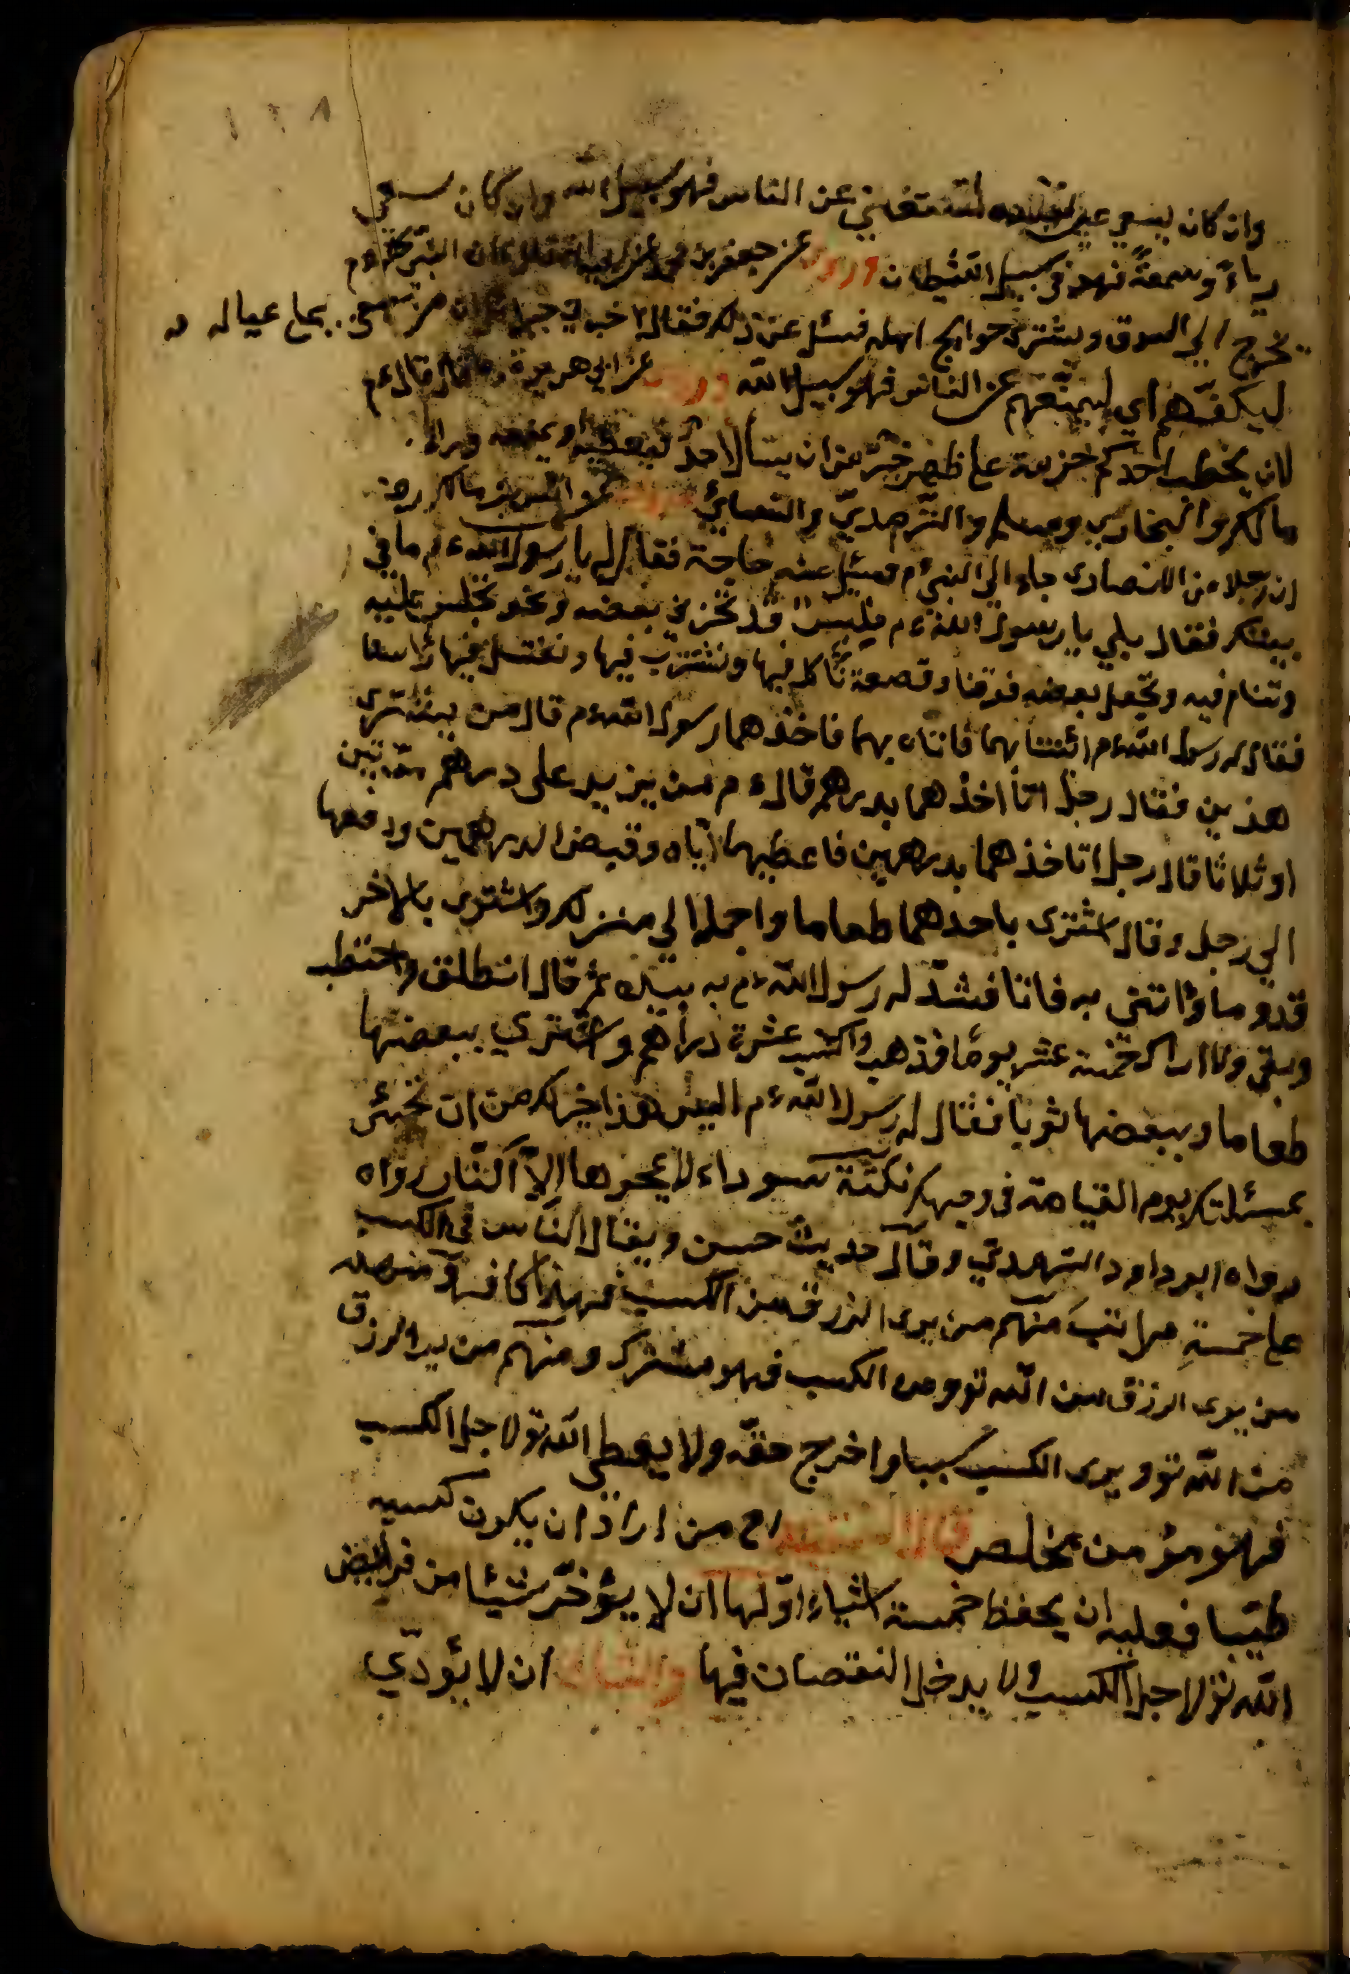 ١٢٨
وان كان يسعي على نفسه لتستغني عن الناس فهو سبيل الله وان كان سعي
رياءً وسمعةً فهو في سبيل الشيطان وروى عن جعفر بن محمد عن ابيه قال كان النبي ءم
يخرج الي السوق ويشتري حوايج اهله فسئل عن ذلك فقال اخبرني جبرائيل ان من سعي علي عياله
ليكفّهم اي ليمنعهم عن الناس فهو سبيل الله وروى عن ابي هريرة قال قال ءم
لان يحطب احدكم حزمة علي ظهر خير من ان يسأل احدٌ فيعطيه او يمنعه رواه
مالك والبخاري ومسلم والترمديّ والنسائي وروى عن انس بن مالك رضه
ان رجلا من الانصارى جاء الي النبي ءم فسئل عنه حاجة فقال له يا رسول الله ءم ما في
بيتك فقال بلي يا رسول الله ءم فليس قد نحزن بعضه ونحو نجلس عليه
وننام فيه ونجعل بعضه فوقنا وقصعة نأكل فيها ونشرب فيها ونغتسل فيها رأسنا
فقال له رسول الله ءم ائتنا بهما فاتاه بهما فاخذهما رسول الله ءم قال من يشترى
هذين فقال رجل انا اخذهما بدرهم قال ءم من يزيد على درهم مرّتين
او ثلاثا قال رجل انا اخذهما بدرهمين فاعطيهما ايّاه وقبض الدرهمين ودفعها
الي رجل وقال اشترى باحدهما طعاما واحمله الي منزلك واشترى بالاخر
قدوما وأتني به فاتا فشدّ له رسول الله ءم به بيده ثم قال انطلق واحتطب
وبقي ولا اراك خمسة عشر يومًا فذهب واكتسب عشرة دراهم واشترى ببعضها
طعاما وببعضها ثوبا فقال له رسول الله ءم اليس هذا خير لك من ان تجئ
بمسئلتك يوم القيامة في وجهك نكتة سوداء لا يمحوها الا النّار رواه
رواه ابو داود الترمديّ وقال حديث حسن ويقال الناس في الكسب
علي خمسةِ مراتب منهم من يرى الرزق من الكسب فهذا كافر ومنهم
من يرى الرزق من الله تو ومن الكسب فهو مشرك ومنهم من يرا الرزق
من الله تو ويرى الكسب سببا واخرج حقّه ولا يعطي الله تو لاجل الكسب
فهو مؤمن مخلص قال الفقيه رح من اراد ان يكون كسبه
طيّبا فعليه ان يحفظ خمسة اشياء اوّلها ان لا يؤخّر شيئا من فرايض
الله تو لاجل الكسب ولا يدخل النقصان فيها والثاني ان لا يؤدّي